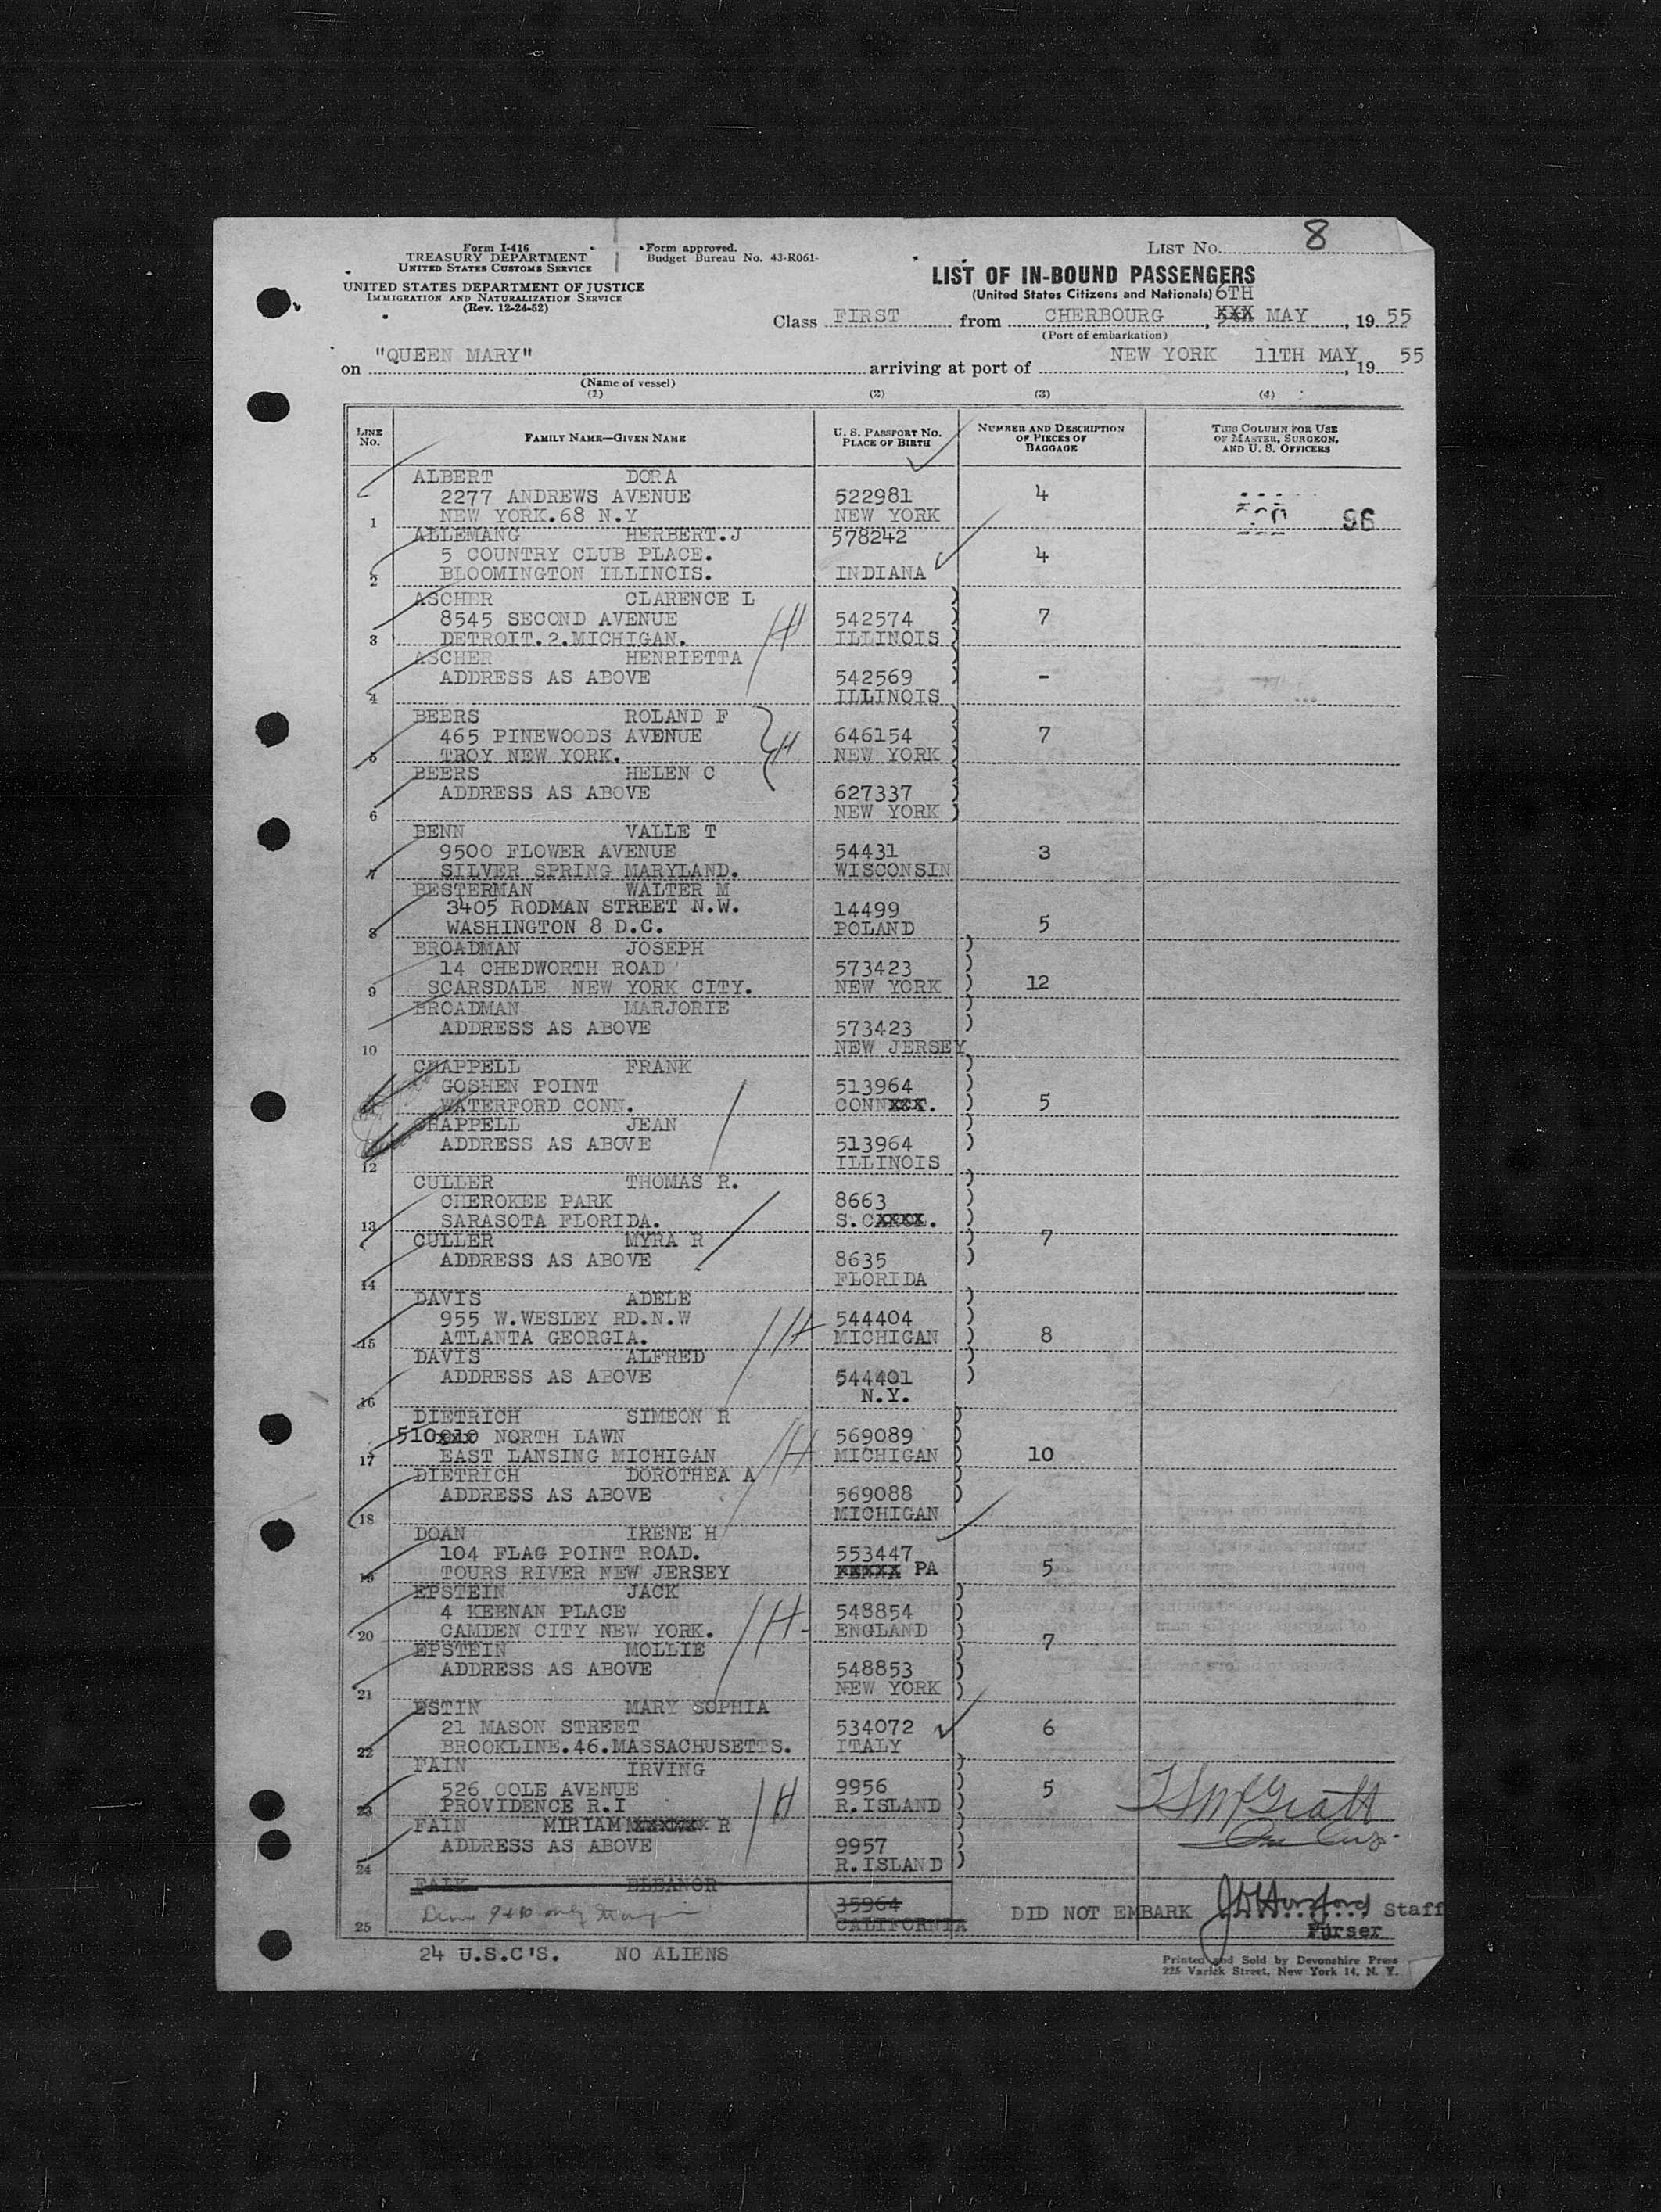 Form I-416
TREASURY DEPARTMENT
UNITED STATES CUSTOMS SERVICE
UNITED STATES DEPARTMENT OF JUSTICE
IMMIGRATION AND NATURALIZATION SERVICE
(Rev. 12-24-52)
Form approved.
Budget Bureau No. 43-R061-
LIST No. 8
LIST OF IN-BOUND PASSENGERS
(United States Citizens and Nationals) 6TH
Class FIRST from CHERBOURG, XXX MAY, 19 55
(Port of embarkation)
on "QUEEN MARY" arriving at port of NEW YORK 11TH MAY, 19 55
(Name of vessel)
(1) (2) (3) (4)
LINE No. FAMILY NAME—GIVEN NAME U. S. PASSPORT NO. PLACE OF BIRTH NUMBER AND DESCRIPTION OF PIECES OF BAGGAGE THIS COLUMN FOR USE OF MASTER, SURGEON, AND U. S. OFFICERS
ALBERT DORA
2277 ANDREWS AVENUE 522981 4
1 NEW YORK.68 N.Y NEW YORK 96
ALLEMANG HERBERT.J 578242
5 COUNTRY CLUB PLACE. 4
2 BLOOMINGTON ILLINOIS. INDIANA
ASCHER CLARENCE L
8545 SECOND AVENUE 542574 7
3 DETROIT.2.MICHIGAN. ILLINOIS
ASCHER HENRIETTA
ADDRESS AS ABOVE 542569 -
4 ILLINOIS
BEERS ROLAND F
465 PINEWOODS AVENUE 646154 7
5 TROY NEW YORK. NEW YORK
BEERS HELEN C
ADDRESS AS ABOVE 627337
6 NEW YORK
BENN VALLE T
9500 FLOWER AVENUE 54431 3
7 SILVER SPRING MARYLAND. WISCONSIN
BESTERMAN WALTER M
3405 RODMAN STREET N.W. 14499
8 WASHINGTON 8 D.C. POLAND 5
BROADMAN JOSEPH
14 CHEDWORTH ROAD 573423
9 SCARSDALE NEW YORK CITY. NEW YORK 12
BROADMAN MARJORIE
ADDRESS AS ABOVE 573423
10 NEW JERSEY
CHAPPELL FRANK
GOSHEN POINT 513964
11 WATERFORD CONN. CONNXXX. 5
CHAPPELL JEAN
ADDRESS AS ABOVE 513964
12 ILLINOIS
CULLER THOMAS R.
CHEROKEE PARK 8663
13 SARASOTA FLORIDA. S.CXXXX.
CULLER MYRA R 7
ADDRESS AS ABOVE 8635
14 FLORIDA
DAVIS ADELE
955 W.WESLEY RD.N.W 544404
15 ATLANTA GEORGIA. MICHIGAN 8
DAVIS ALFRED
ADDRESS AS ABOVE 544401
16 N.Y.
DIETRICH SIMEON R
510 NORTH LAWN 569089
17 EAST LANSING MICHIGAN MICHIGAN 10
DIETRICH DOROTHEA A
ADDRESS AS ABOVE 569088
18 MICHIGAN
DOAN IRENE H
104 FLAG POINT ROAD. 553447
19 TOURS RIVER NEW JERSEY XXXXX PA 5
EPSTEIN JACK
4 KEENAN PLACE 548854
20 CAMDEN CITY NEW YORK. ENGLAND
EPSTEIN MOLLIE 7
ADDRESS AS ABOVE 548853
21 NEW YORK
ESTIN MARY SOPHIA
21 MASON STREET 534072 6
22 BROOKLINE.46.MASSACHUSETTS. ITALY
FAIN IRVING
526 COLE AVENUE 9956 5
23 PROVIDENCE R.I R.ISLAND
FAIN MIRIAM XXXXXX R
ADDRESS AS ABOVE 9957
24 R.ISLAND
FALK ELEANOR
35964 DID NOT EMBARK Staff
25 CALIFORNIA Purser
24 U.S.C'S. NO ALIENS
Printed and Sold by Devonshire Press
225 Varick Street, New York 14, N. Y.